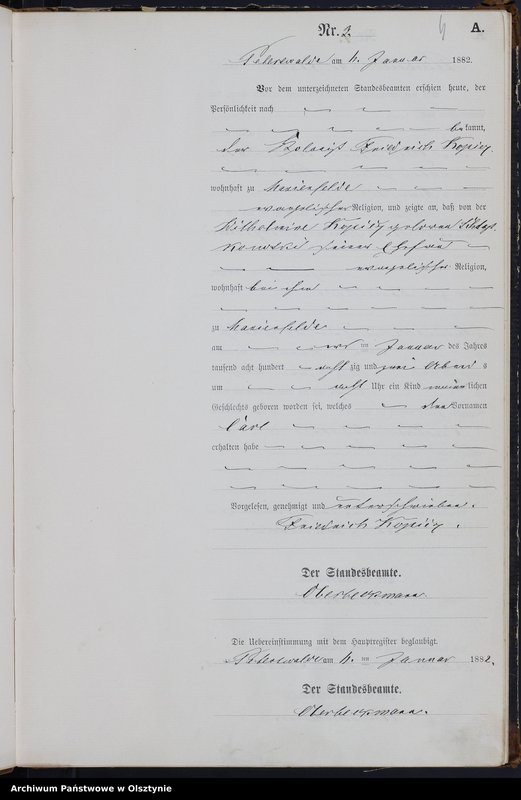 Nr. 2. A.
Peterswalde am 4. Januar 1882.
Vor dem unterzeichneten Standesbeamten erschien heute, der
Persönlichkeit nach
bekannt,
der Friedrich
wohnhaft zu Marienfelde
evangelischer Religion, und zeigte an, daß von der
Wilhelmine geborenen
seiner Ehefrau
evangelischer Religion,
wohnhaft bei ihm
zu Marienfelde
am im Januar des Jahres
tausend acht hundert acht zig und zwei Abend s
um acht Uhr ein Kind männlichen
Geschlechts geboren worden sei, welches den Vornamen
Carl
erhalten habe
Vorgelesen, genehmigt und unterschrieben.
Friedrich
Der Standesbeamte.
Oberbeckmann
Die Uebereinstimmung mit dem Hauptregister beglaubigt.
Peterswalde am 4. im Januar 1882.
Der Standesbeamte.
Oberbeckmann.
Archiwum Państwowe w Olsztynie